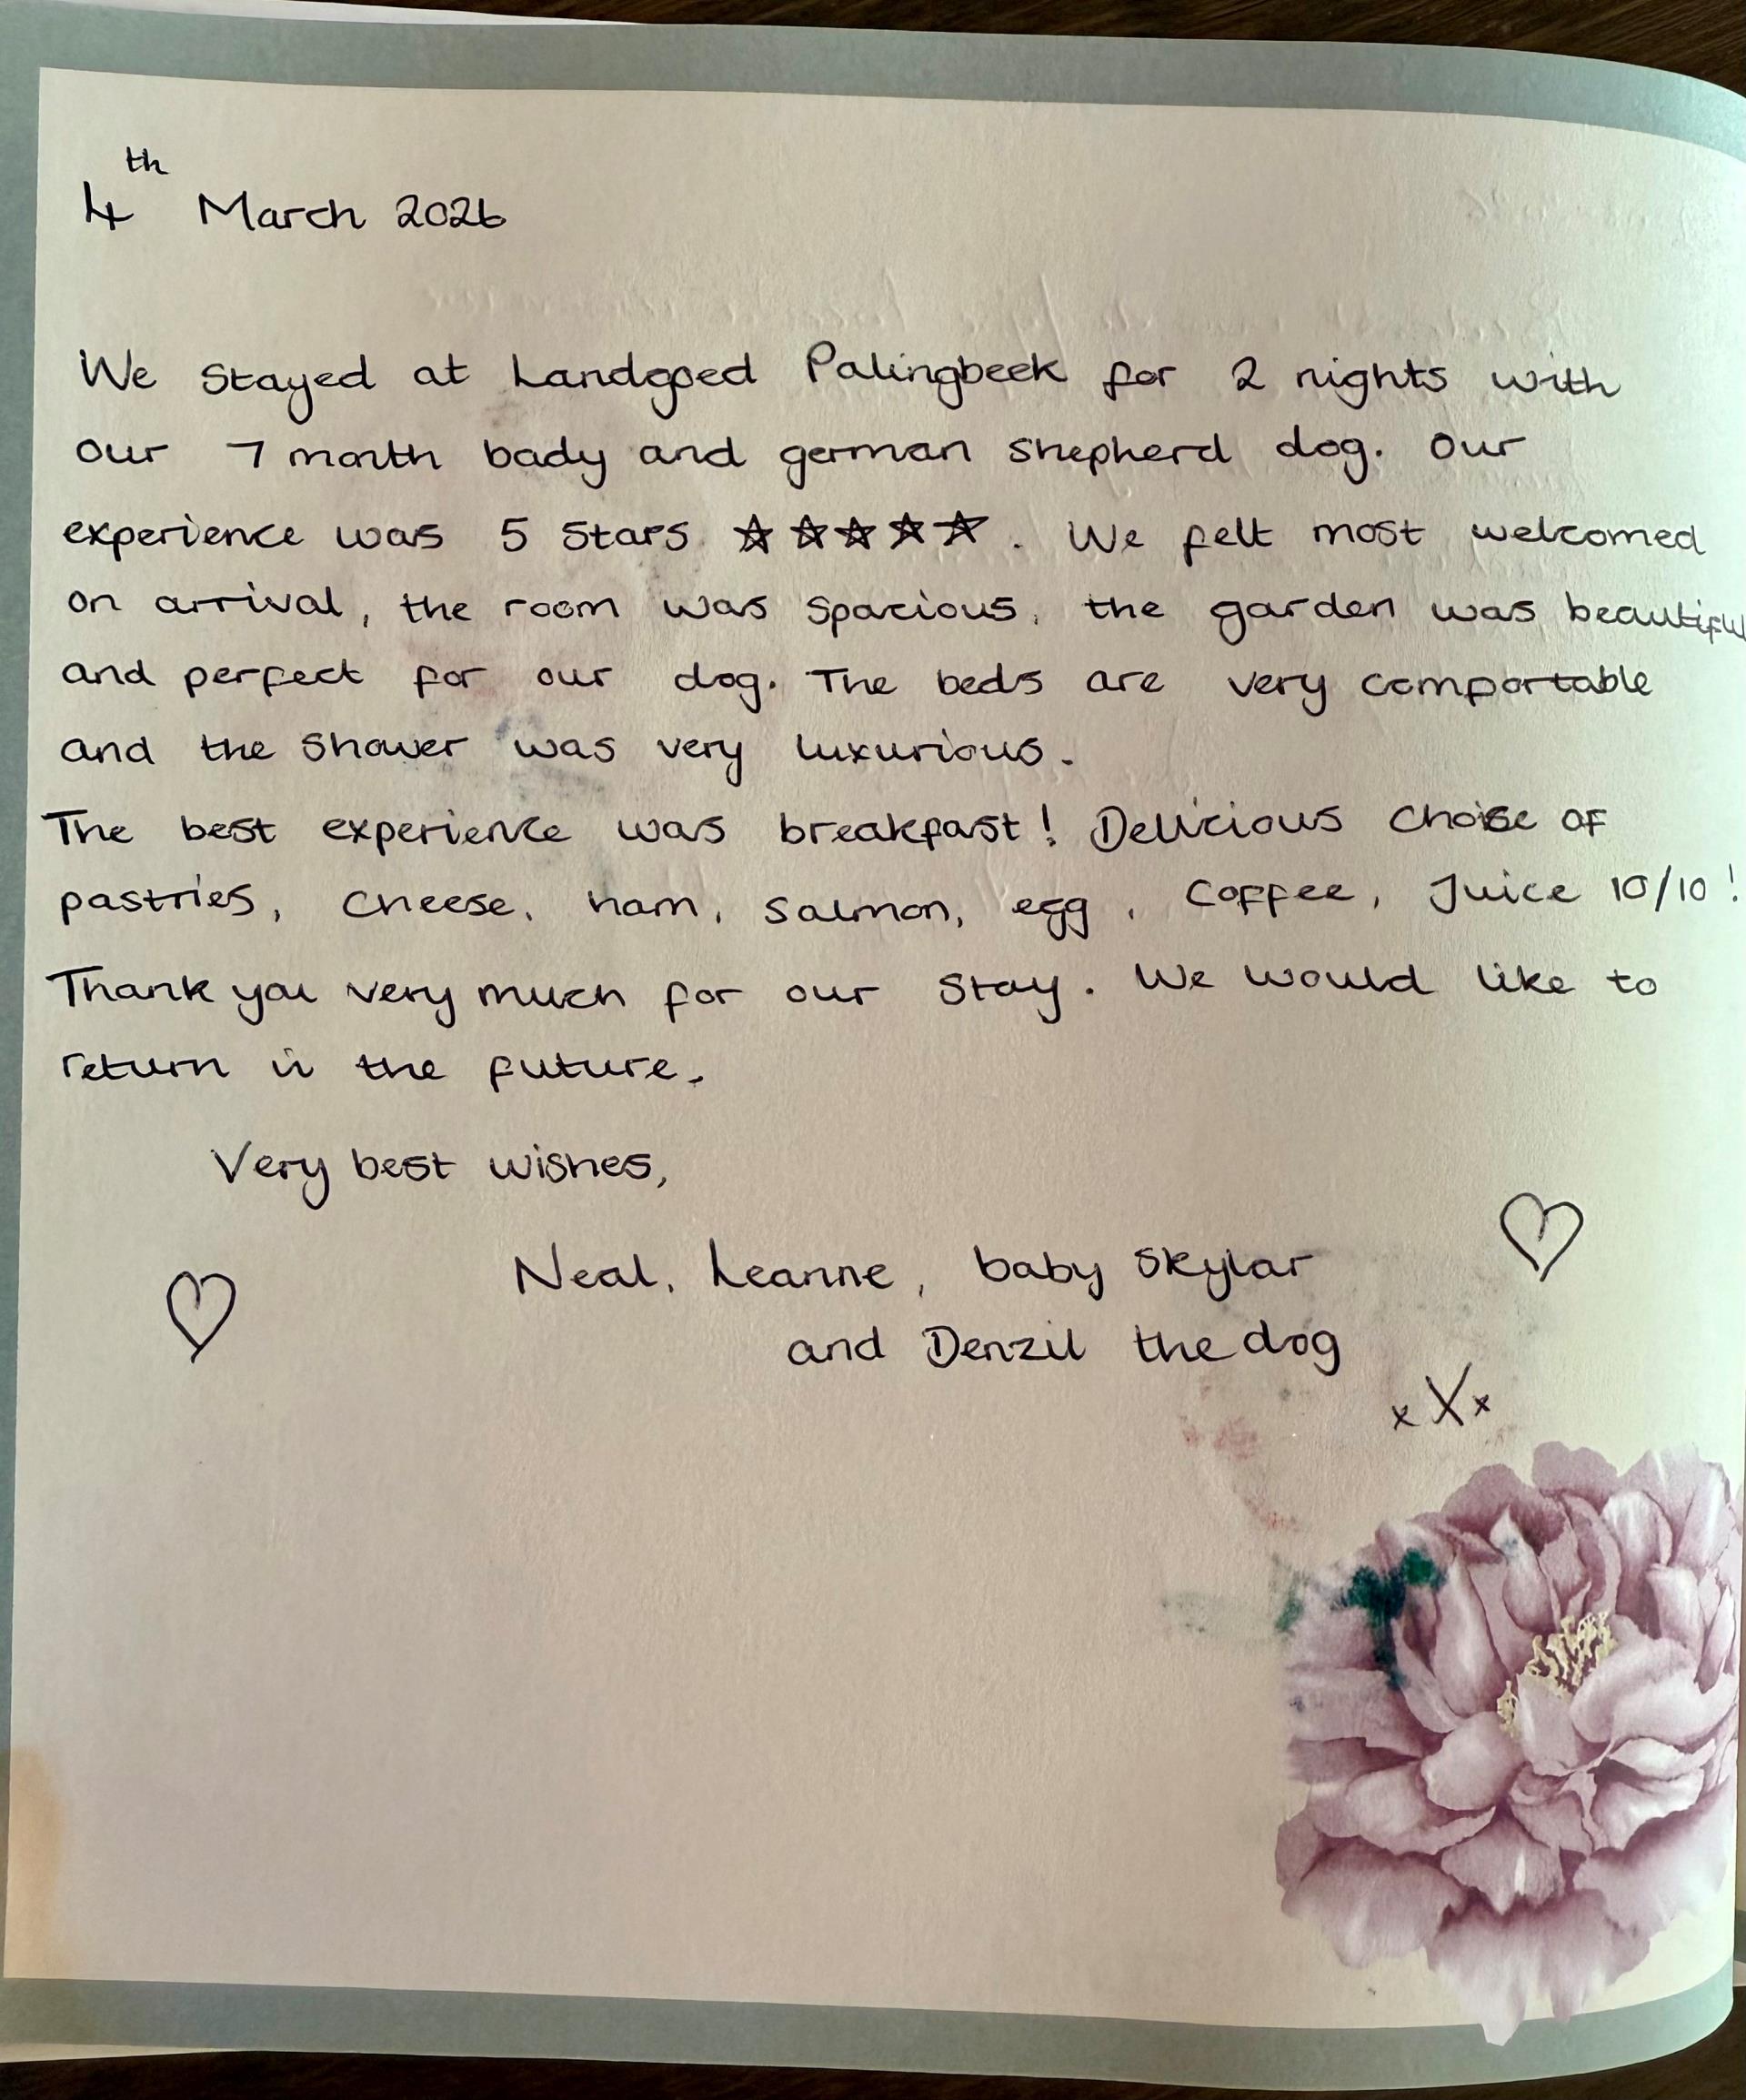 4th March 2026
We stayed at Landgoed Palingbeek for 2 nights with
our 7 month bady and german shepherd dog. Our
experience was 5 stars ☆☆☆☆☆. We felt most welcomed
on arrival, the room was spacious, the garden was beautiful
and perfect for our dog. The beds are very comfortable
and the shower was very luxurious.
The best experience was breakfast! Delicious choise of
pastries, cheese, ham, salmon, egg, coffee, juice 10/10!
Thank you very much for our stay. We would like to
return in the future.
Very best wishes,
Neal, Leanne, baby Skylar
and Denzil the dog
xXx